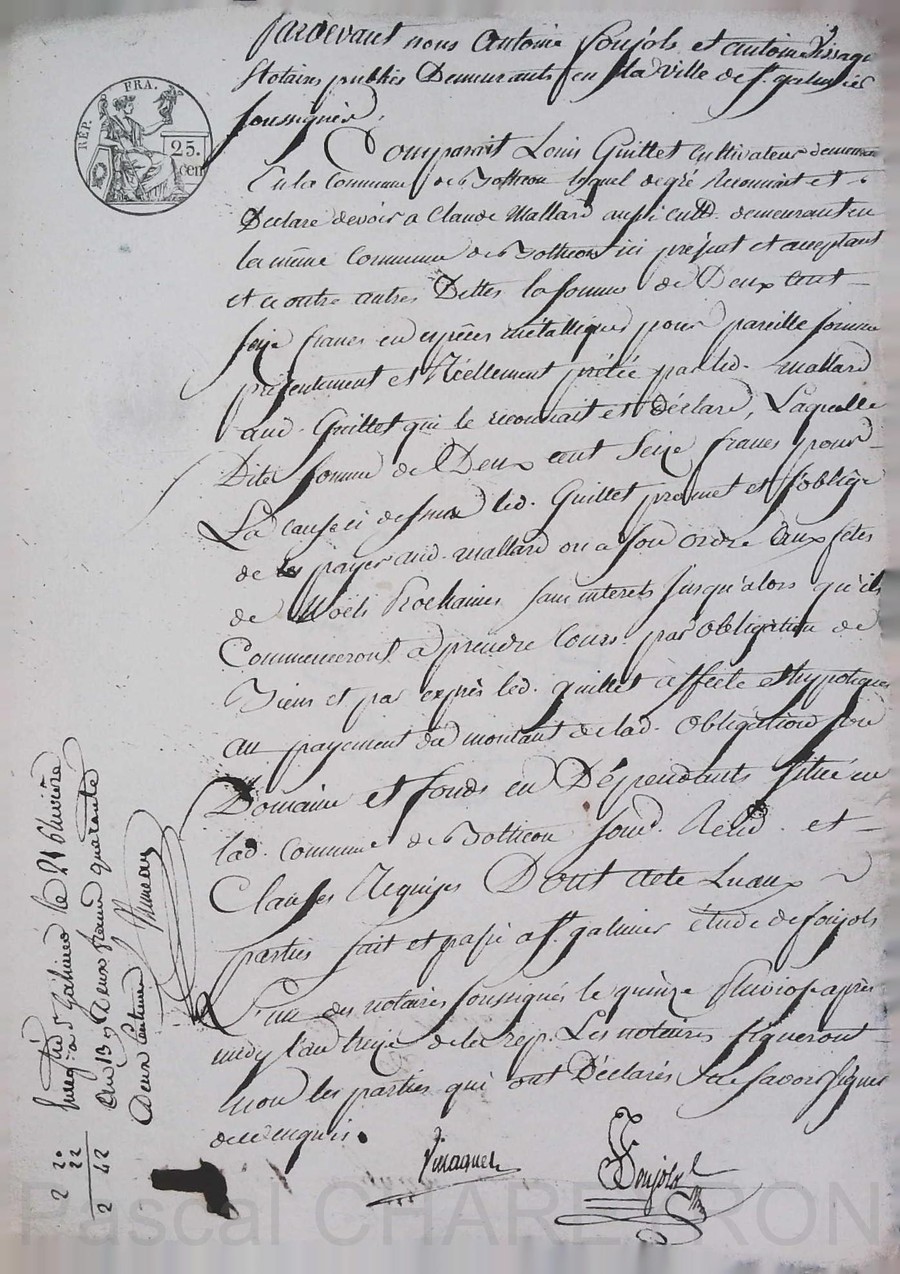 REP. FRA.
25.
cen
Pardevant nous Antoine Soujols et antoine
Notaires publics Demeurants en la Ville de St. galmier
soussignés,
Comparait Louis Guillet Cultivateur
En la Commune de lequel de gré Reconnait et
Déclare devoir a Claude Mallard demeurant en
la même Commune de ici présent et acceptant
et ce outre autres Dettes la somme de Deux cent
seize francs en espèces métalliques pour pareille somme
présentement et Réellement prêtée par led. mallard
aud. Guillet qui le reconnait et Déclare, Laquelle
Dite somme de Deux cent seize francs pour
La cause ci dessus led. Guillet promet et s'oblige
de les payer aud. mallard ou a son ordre aux fetes
de Noëls Rochaines sans interets jusqu'alors qu'ils
Commenceront a prendre Cours par obligation de
Biens et par exprès led. guillet affecte et hypoteques
au payement du montant de lad. Obligation son
Domaine et fonds en Dépendants situé en
lad. Commune de soud. Rend. et
Clauses Requises Dont acte Lu aux
parties fait et passé a St. galmier étude de soujols
L'un des notaires soussignés le quinze Pluviose après
midy l'an treize de la rep. Les notaires signeront
non les parties qui ont Déclarés ne savoir signer
de ce enquis.
Soujols
Enregistré à St. Galmier le 21 Pluviose
an 13 Deux francs quarante
Deux Centimes
2 20
22
2 42
Pascal CHAREYRON